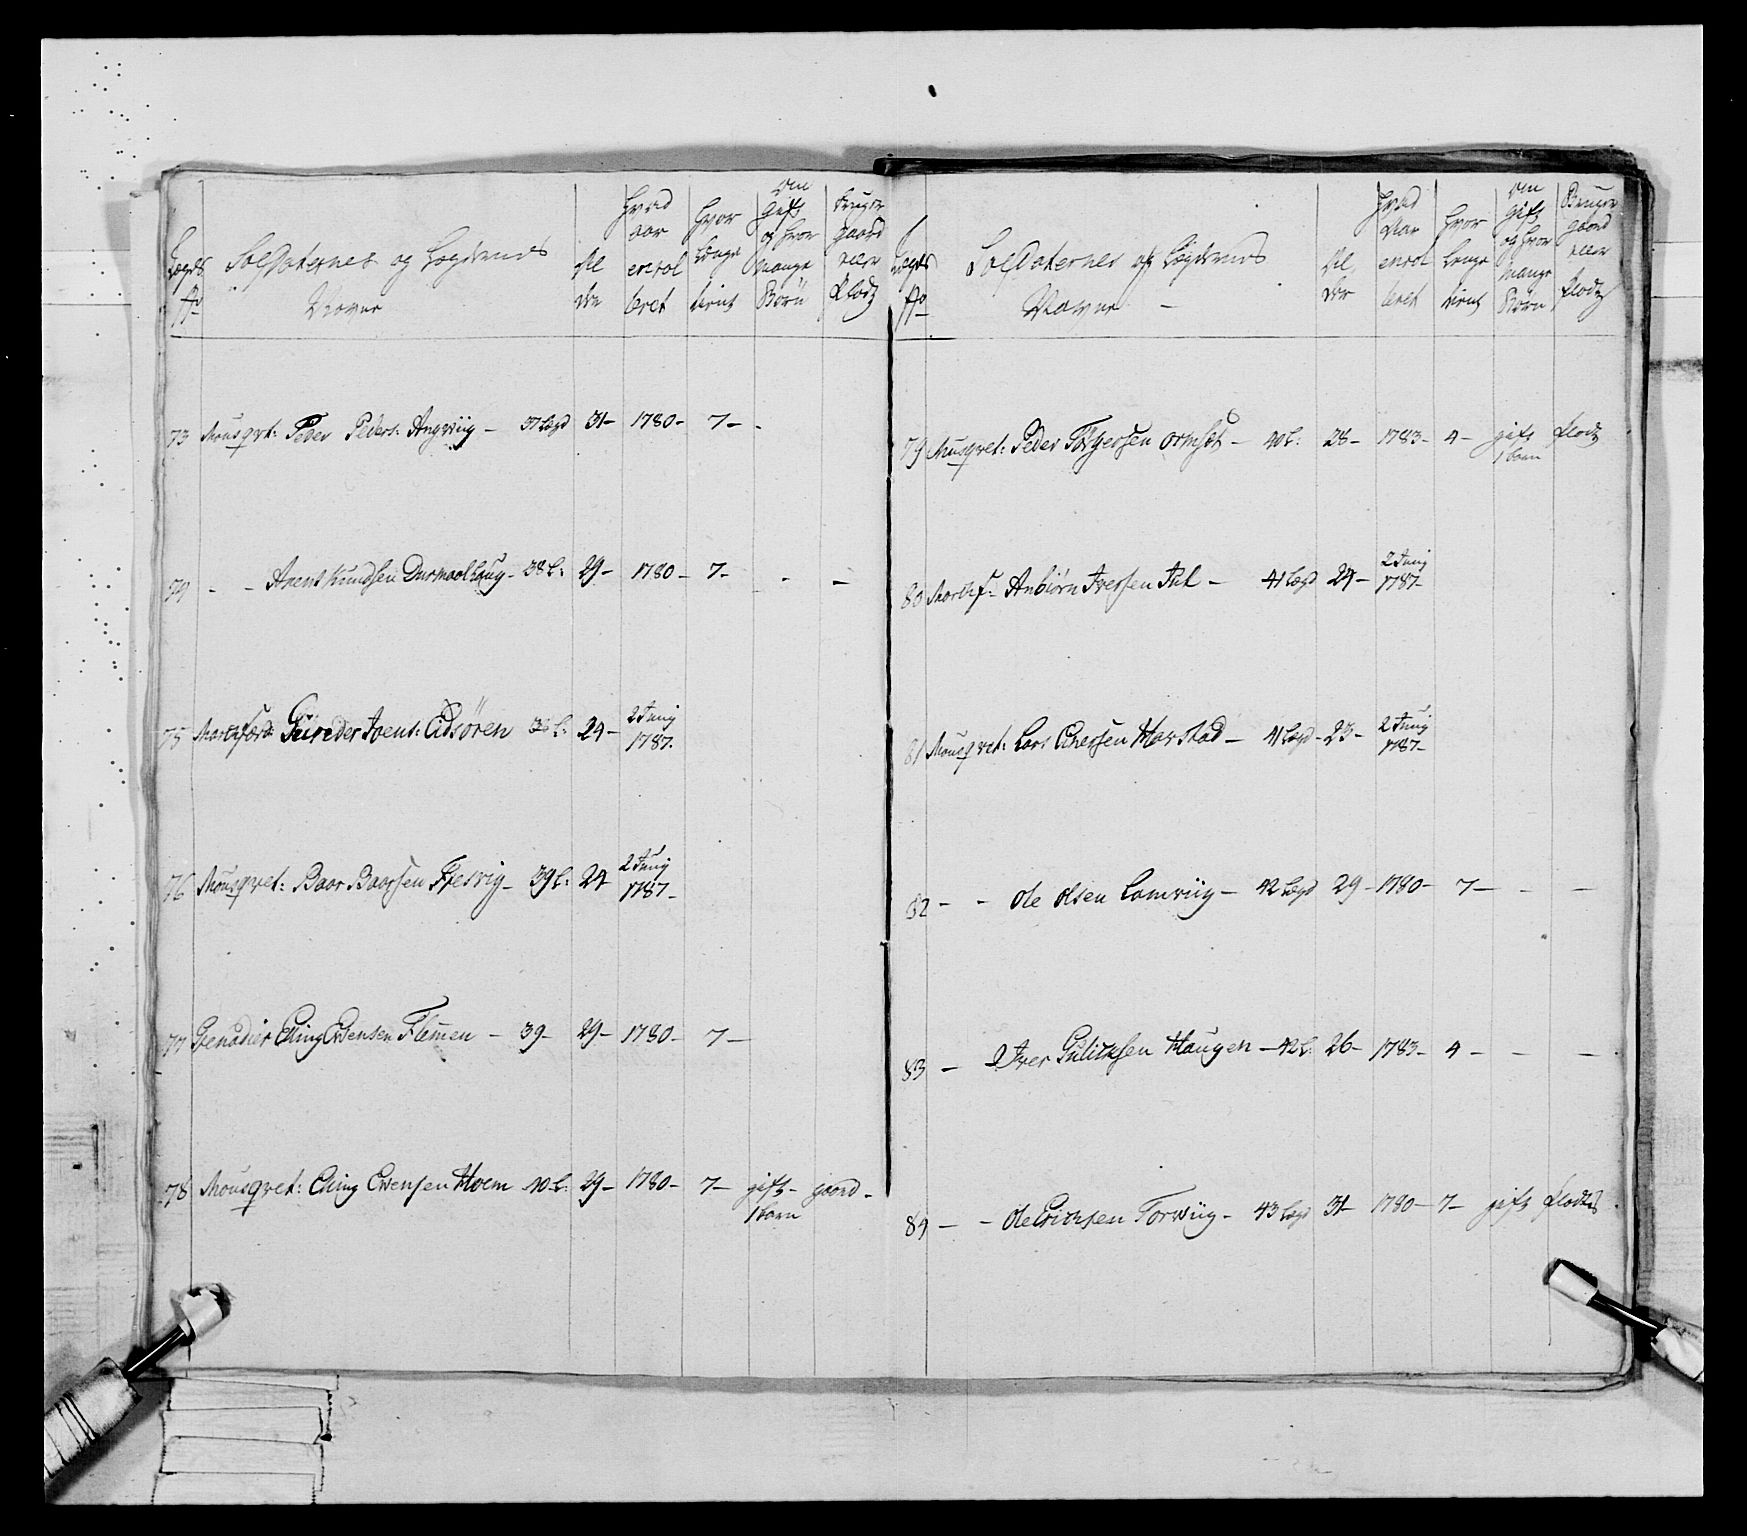 Soldaternes og Lægdernes
Navne
Al
der
Hvad
aar
enrol
leret
Hvor
længe
tient
Om
Gift
og hvor
mange
Børn
Bruger
gaard
eller
Plads
73 Mousqvt: Peder Peders: Angviig - 37 Lægd 31 - 1780 - 7 - -
74 - - Arent Knudsen Durmaalhaug - 38 L: 29 - 1780 - 7 - - -
75 Eidsören 38 L: 24 - 2 Junij
1787.
76 Mousqvet: Baar Baarsen - 39 L: 24 2 Junij
1787 -
77 Grenadier Elling Evensen Flemen - 39 - 29 - 1780 - 7 -
78 Mousqvet: Elling Evensen Hoem 40 L: 29 - 1780 - 7 - gift - gaard -
1 barn
Soldaternes og Lægdernes
Navne -
Al
der
Hvad
Aar
enrol
leret
Hvor
lenge
tient
Om
Gift
og hvor
mange
Børn
Bruger
gaard
eller
Plads
79 Musqvet: Peder Torgersen Ormset - 40 L: 28 - 1783 - 4 - gift Plads
1 barn
80 Anbiörn Iversen - 41 Lægd 24 - 2 Junij
1787 -
81 Mousqvet: Lars Harstad - 41 Lægd - 23 - 2 Junij
1787 -
82 - - Ole Olsen Lamviig - 42 Lægd 29 - 1780 - 7 - - -
83 - Iver Gulichsen Haugen - 42 L: 26 - 1783 - 4 - - -
84 - - Ole Erichsen Torwiig - 43 Lægd 31 - 1780 - 7 - gift Plads